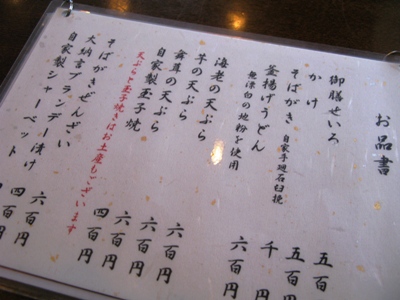 お品書
御膳せいろ 五百
かけ 五百円
そばがき 自家手廻石臼挽 千円
釜揚げうどん 六百円
無漂白の地粉を使用
海老の天ぷら 六百円
芋の天ぷら 六百円
舞茸の天ぷら 六百円
自家製玉子焼 四百円
天ぷらと玉子焼きはお土産もございます
そばがきぜんざい 六百円
大納言ブランデー漬け 四百円
自家製シャーベット 四百